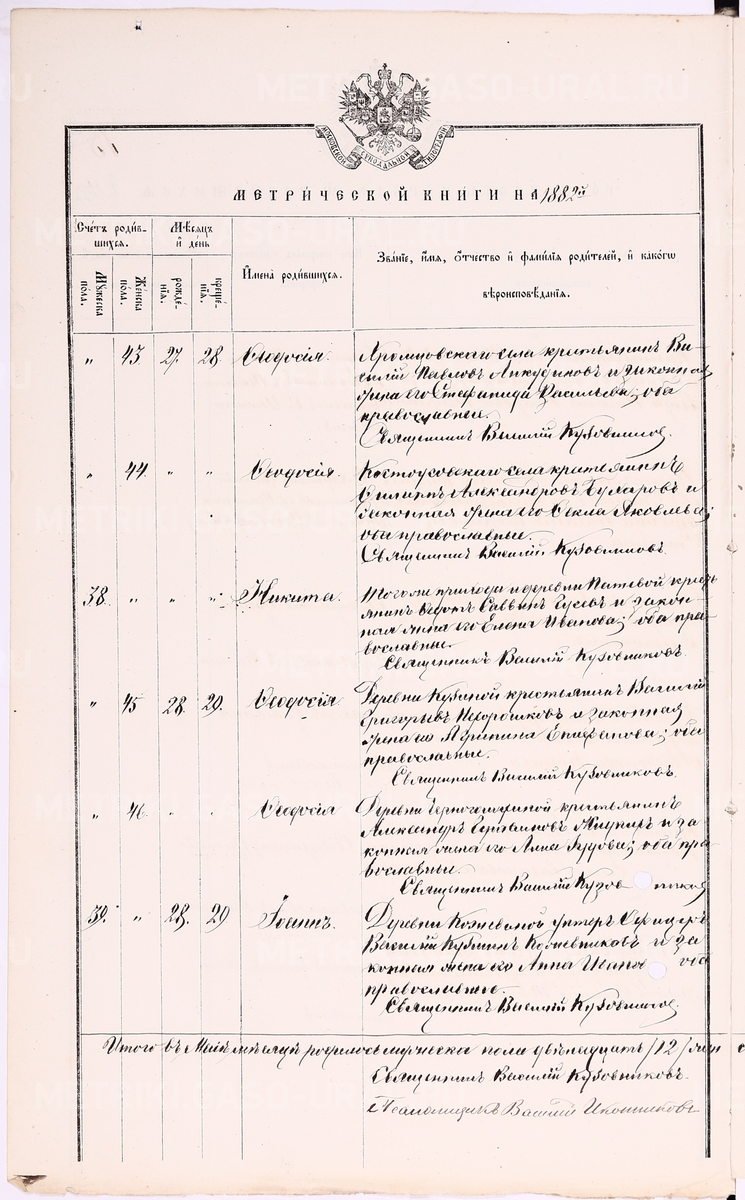 МОСКОВСКОЙ СѴНОДАЛЬНОЙ ТИПОГРАФІИ
МЕТРИ́ЧЕСКОЙ КНИ́ГИ НА 1882й
Сче́тъ роди́в-
шихся.
Мѣ́сяцъ
и҆ де́нь
Мꙋ́жеска
по́ла.
Же́нска
по́ла.
рожде́-
нїѧ.
креще́-
нїѧ.
И҆мена̀ роди́вшихся.
Зва́нїе, и҆́мя, ѻ҆́тчество и҆ фами́лїя роди́телей, и҆ како́гѡ
вѣроисповѣ́данїя.
„ 43. 27. 28 Ѳеодосія.
Хромцовскаго села крестьянинъ Ва-
силій Павловъ Анкудиновъ и законная
жена его Стефанида Васильева; оба
православные.
Священникъ Василій Кузовниковъ.
„ 44. „ „ Ѳеодосія.
Костоусовскаго села крестьянинъ
Филиппъ Александровъ и
законная жена его Ѳекла Яковлева;
оба православные.
Священникъ Василій Кузовниковъ.
38. „ „ „ Никита.
Тогоже прихода и деревни кресть-
янинъ Ѳедотъ Саввинъ Гусевъ и закон-
ная жена его Елена Иванова; оба пра-
вославные.
Священникъ Василій Кузовниковъ.
„ 45 28. 29. Ѳеодосія.
Деревни крестьянинъ Василій
Григорьевъ и законная
жена его Агрипина Епифанова; оба
православные.
Священникъ Василій Кузовниковъ.
„ 46. „ „ Ѳеодосія
Деревни крестьянинъ
Александръ и за
конная жена его Анна оба пра-
вославные.
Священникъ Василій Кузов никовъ
39. „ 28. 29 Іоаннъ.
Деревни унтеръ Офицеръ
Василій Кожевниковъ и за
конная жена его Анна Иванов оба
православные.
Священникъ Василій Кузовниковъ.
Итого въ Маѣ мѣсяцѣ родилось мужеска пола двѣнадцать /12/
Священникъ Василій Кузовниковъ.
Псаломщикъ Василій Иконниковъ